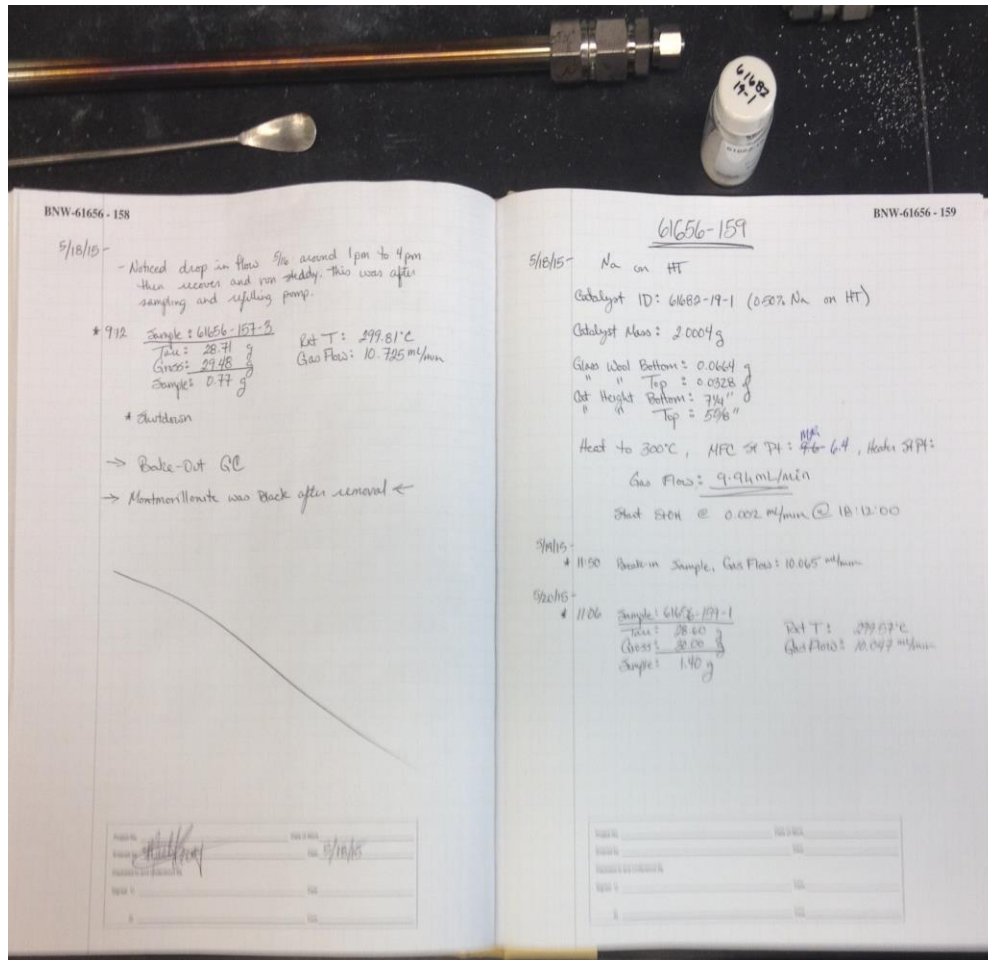 61682
19-1
BNW-61656 - 158
5/18/15 -
- Noticed drop in flow 5/16 around 1pm to 4pm
then recover and run steddy. this was after
sampling and refilling pump.
* 912 Sample: 61656-157-3
Tare: 28.71 g
Gross: 29.48 g
Sample: 0.77 g
Rxt T: 299.81°C
Gas Flow: 10.725 mL/min
* Shutdown
→ Bake-Out GC
→ Montmorillonite was Black after removal ←
5/18/15
BNW-61656 - 159
61656-159
5/18/15 - Na on HT
Catalyst ID: 61682-19-1 (0.50% Na on HT)
Catalyst Mass: 2.0004 g
Glass Wool Bottom: 0.0664 g
" " Top: 0.0328 g
Cat Height Bottom: 7 1/4"
" " Top: 5 5/8"
Heat to 300°C, MFC St Pt: 6.4, Heater St Pt:
Gas Flow: 9.94 mL/min
Start EtOH @ 0.002 ml/min @ 18:12:00
5/19/15 -
* 11:50 Break-in Sample, Gas Flow: 10.065 ml/min
5/20/15 -
* 11:06 Sample: 61656-159-1
Tare: 28.60 g
Gross: 30.00 g
Sample: 1.40 g
Rxt T: 299.57°C
Gas Flow: 10.047 ml/min